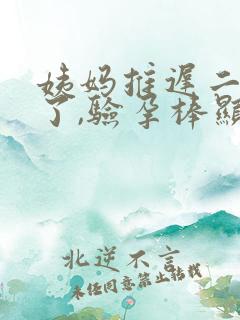 姨妈推迟二
了,验孕棒显
北逆不言
未经同意禁止转载